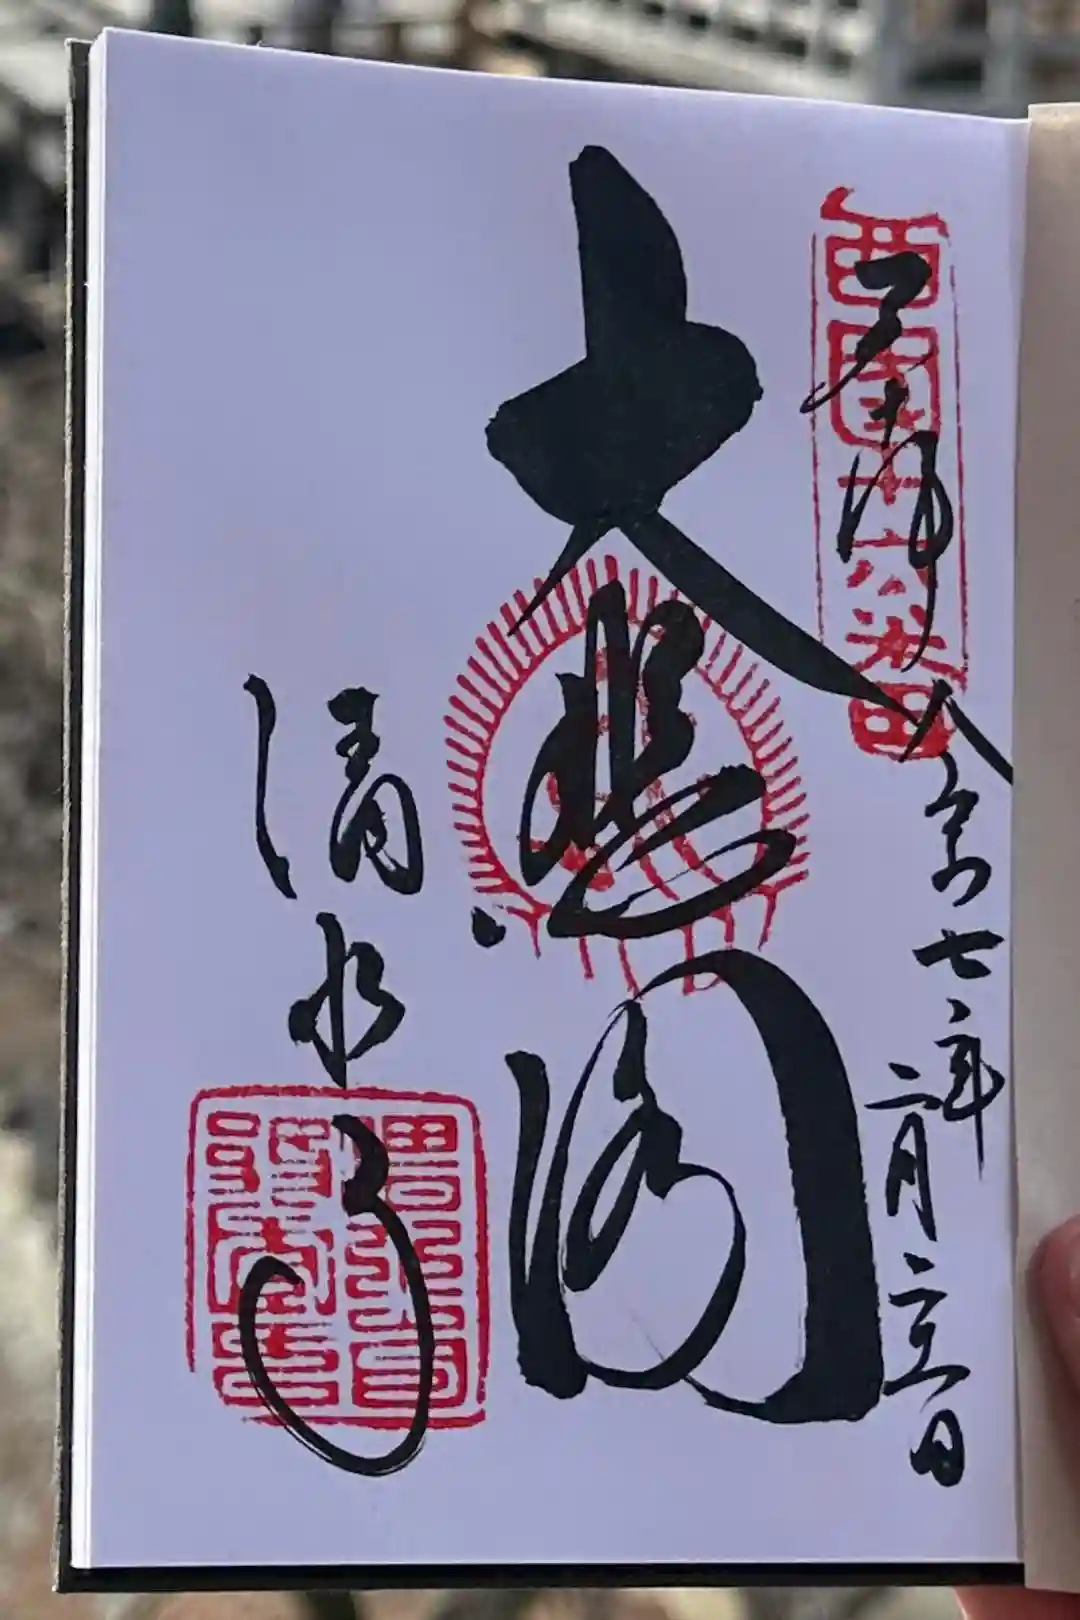 西国十六番
奉拝
令和七年
二月 日
大悲閣
清水寺